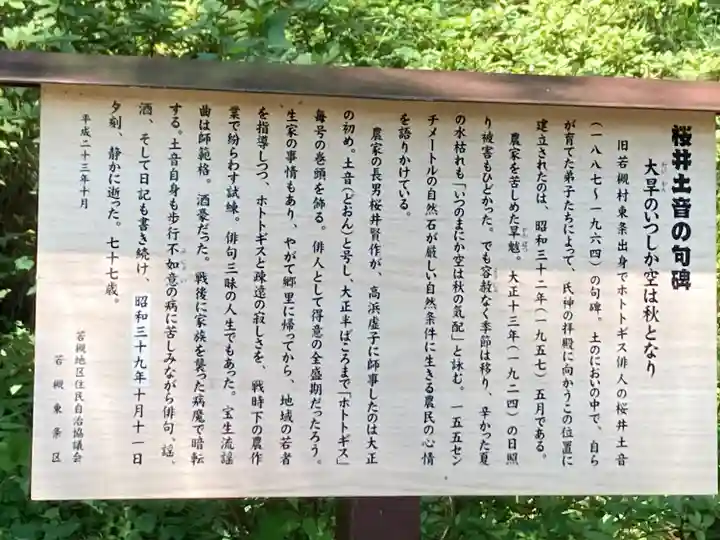 桜井土音の句碑
大旱のいつしか空は秋となり
おひでり
旧若槻村東条出身でホトトギス俳人の桜井土音
(一八八七〜一九六四)の句碑。土のにおいの中で、自ら
が育てた弟子たちによって、氏神の拝殿に向かうこの位置に
建立されたのは、昭和三十二年(一九五七)五月である。
農家を苦しめた旱魃。大正十三年(一九二四)の日照
かんばつ
り被害もひどかった。でも容赦なく季節は移り、辛かった夏
の水枯れも「いつのまにか空は秋の気配」と詠む。一五五セン
チメートルの自然石が厳しい自然条件に生きる農民の心情
を語りかけている。
農家の長男桜井賢作が、高浜虚子に師事したのは大正
の初め。土音(どおん)と号し、大正半ばころまで「ホトトギス」
毎号の巻頭を飾る。俳人として得意の全盛期だったろう。
生家の事情もあり、やがて郷里に帰ってから、地域の若者
を指導しつつ、ホトトギスと疎遠の寂しさを、戦時下の農作
業で紛らわす試練。俳句三昧の人生でもあった。宝生流謡
曲は師範格。酒豪だった。戦後に家族を襲った病魔で暗転
する。土音自身も歩行不如意の病に苦しみながら俳句、謡、
ふにょい
酒、そして日記も書き続け、昭和三十九年十月十一日
夕刻、静かに逝った。七十七歳。
平成二十三年十月
若槻地区住民自治協議会
若槻東条区